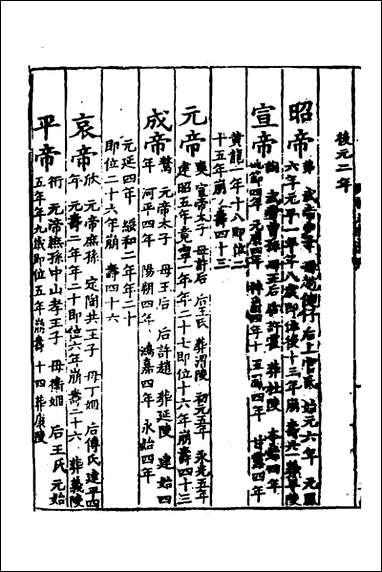 後元二年
昭帝 弗 武帝少子 母趙倢伃 后上官氏 始元六年 元鳳
六年 元平一年 年八歲即位後十三年崩 壽廿一 葬平陵
宣帝 詢 武帝曾孫 母王后 后許霍 葬杜陵 本始四年
地節四年 元康四年 神爵四年 五鳳四年 甘露四年
黃龍一年 十八即位二
十五年崩 壽四十三
元帝 奭 宣帝太子 母許后 后王氏 葬渭陵 初元五年 永光五年
建昭五年 竟寧一年 年二十七即位十六年崩 壽四十三
成帝 驁 元帝太子 母王后 后許趙 葬延陵 建始四
年 河平四年 陽朔四年 鴻嘉四年 永始四年
元延四年 綏和二年 年二十
即位二十六年崩 壽四十六
哀帝 欣 元帝庶孫 定陶共王子 母丁姬 后傅氏 建平四
年 元壽二年 年二十即位六年崩 壽二十六 葬義陵
平帝 衎 元帝庶孫 中山孝王子 母衛姬 后王氏 元始
五年 年九歲即位五年崩 壽十四 葬康陵